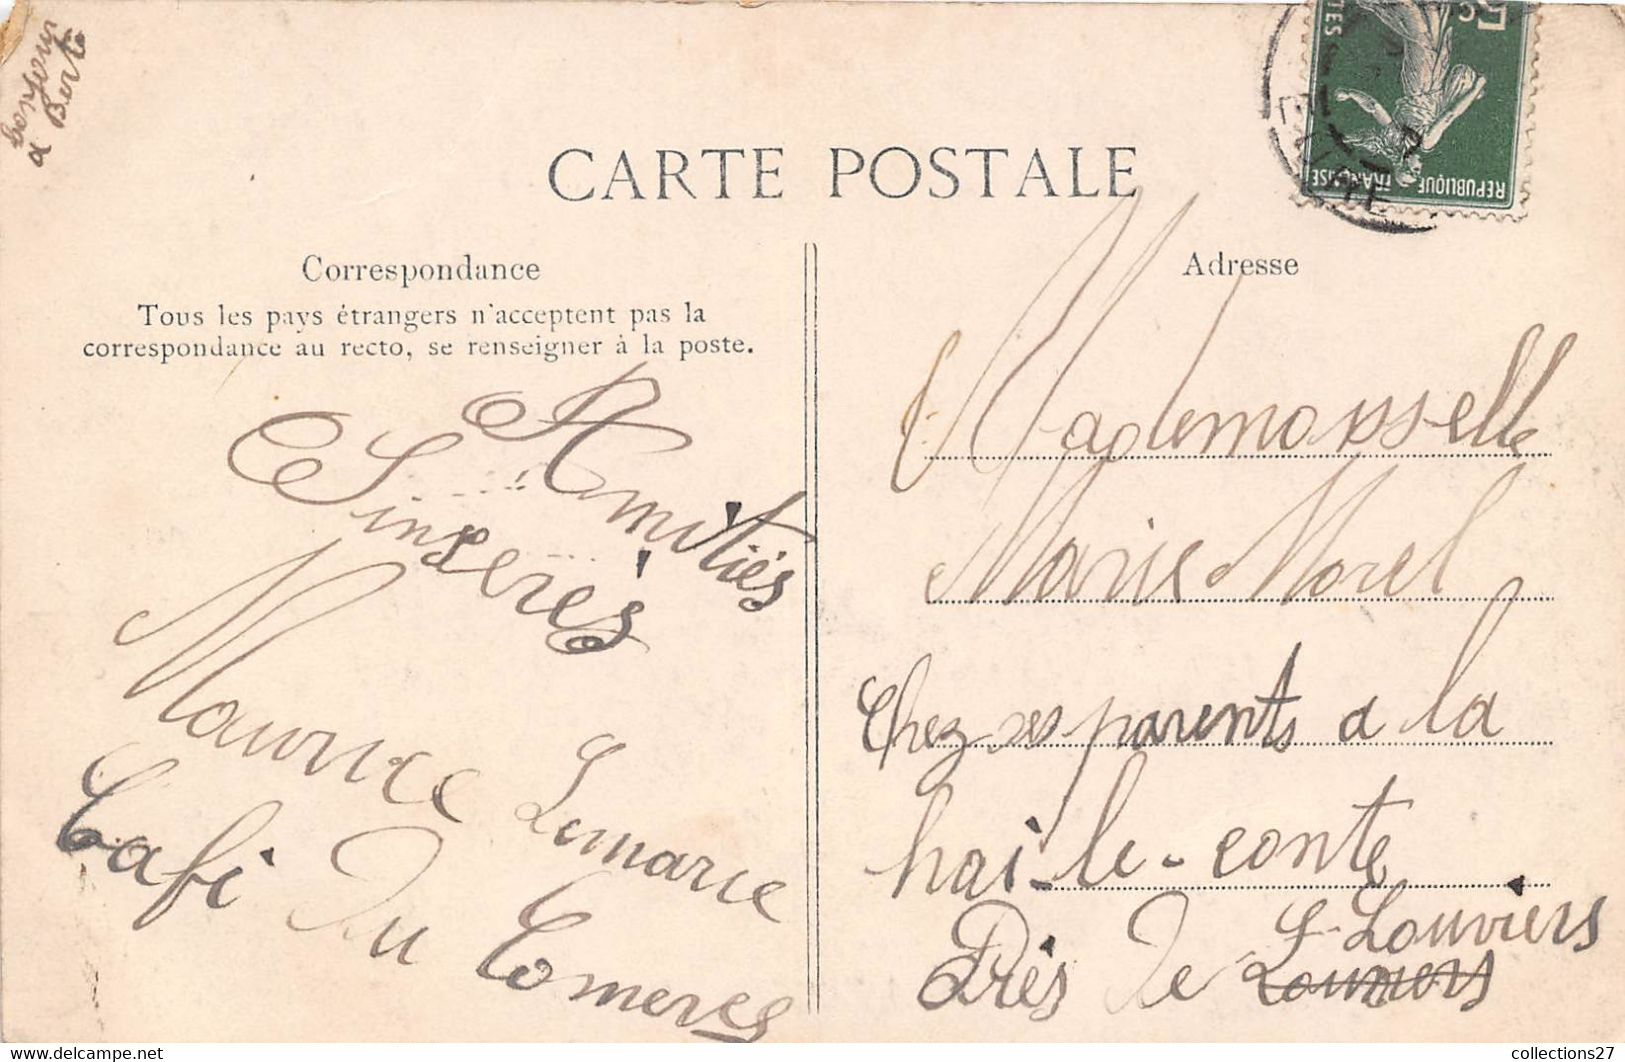 bonjour
a Berte
CARTE POSTALE
Correspondance
Tous les pays étrangers n'acceptent pas la
correspondance au recto, se renseigner à la poste.
Amitiés
Sinseres
Maurice Lemarie
Café Du Comerce
REPUBLIQUE
FRANÇAISE
Adresse
Mademoisselle
Marie Morel
Chez ses parents a la
hai-le-conte
Près de Louviers
collections27